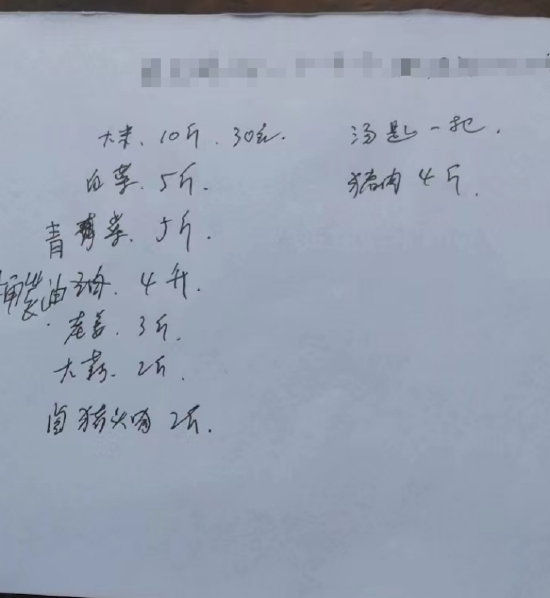 大米、10斤、30元.
白菜、5斤.
青菜、5斤.
桶装油 4升.
老姜、3斤.
大蒜、2斤.
卤猪头肉 2斤.
汤匙一把.
猪肉4斤.